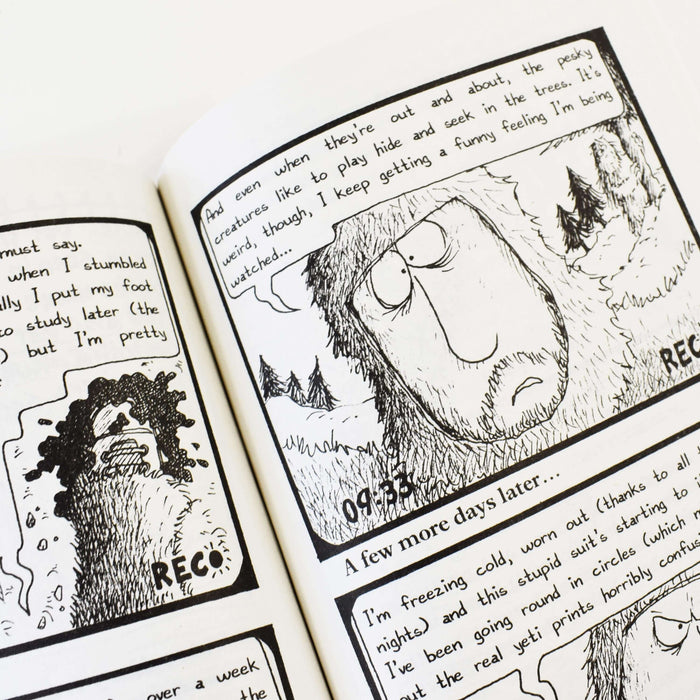 must say.
when I stumbled
I put my foot
to study later (the
but I'm pretty
RECO
over a week
the
And even when they're out and about, the pesky
creatures like to play hide and seek in the trees. It's
weird, though, I keep getting a funny feeling I'm being
watched...
REC
09:33
A few more days later...
I'm freezing cold, worn out (thanks to all
nights) and this stupid suit's starting to
I've been going round in circles (which
out the real yeti prints horribly